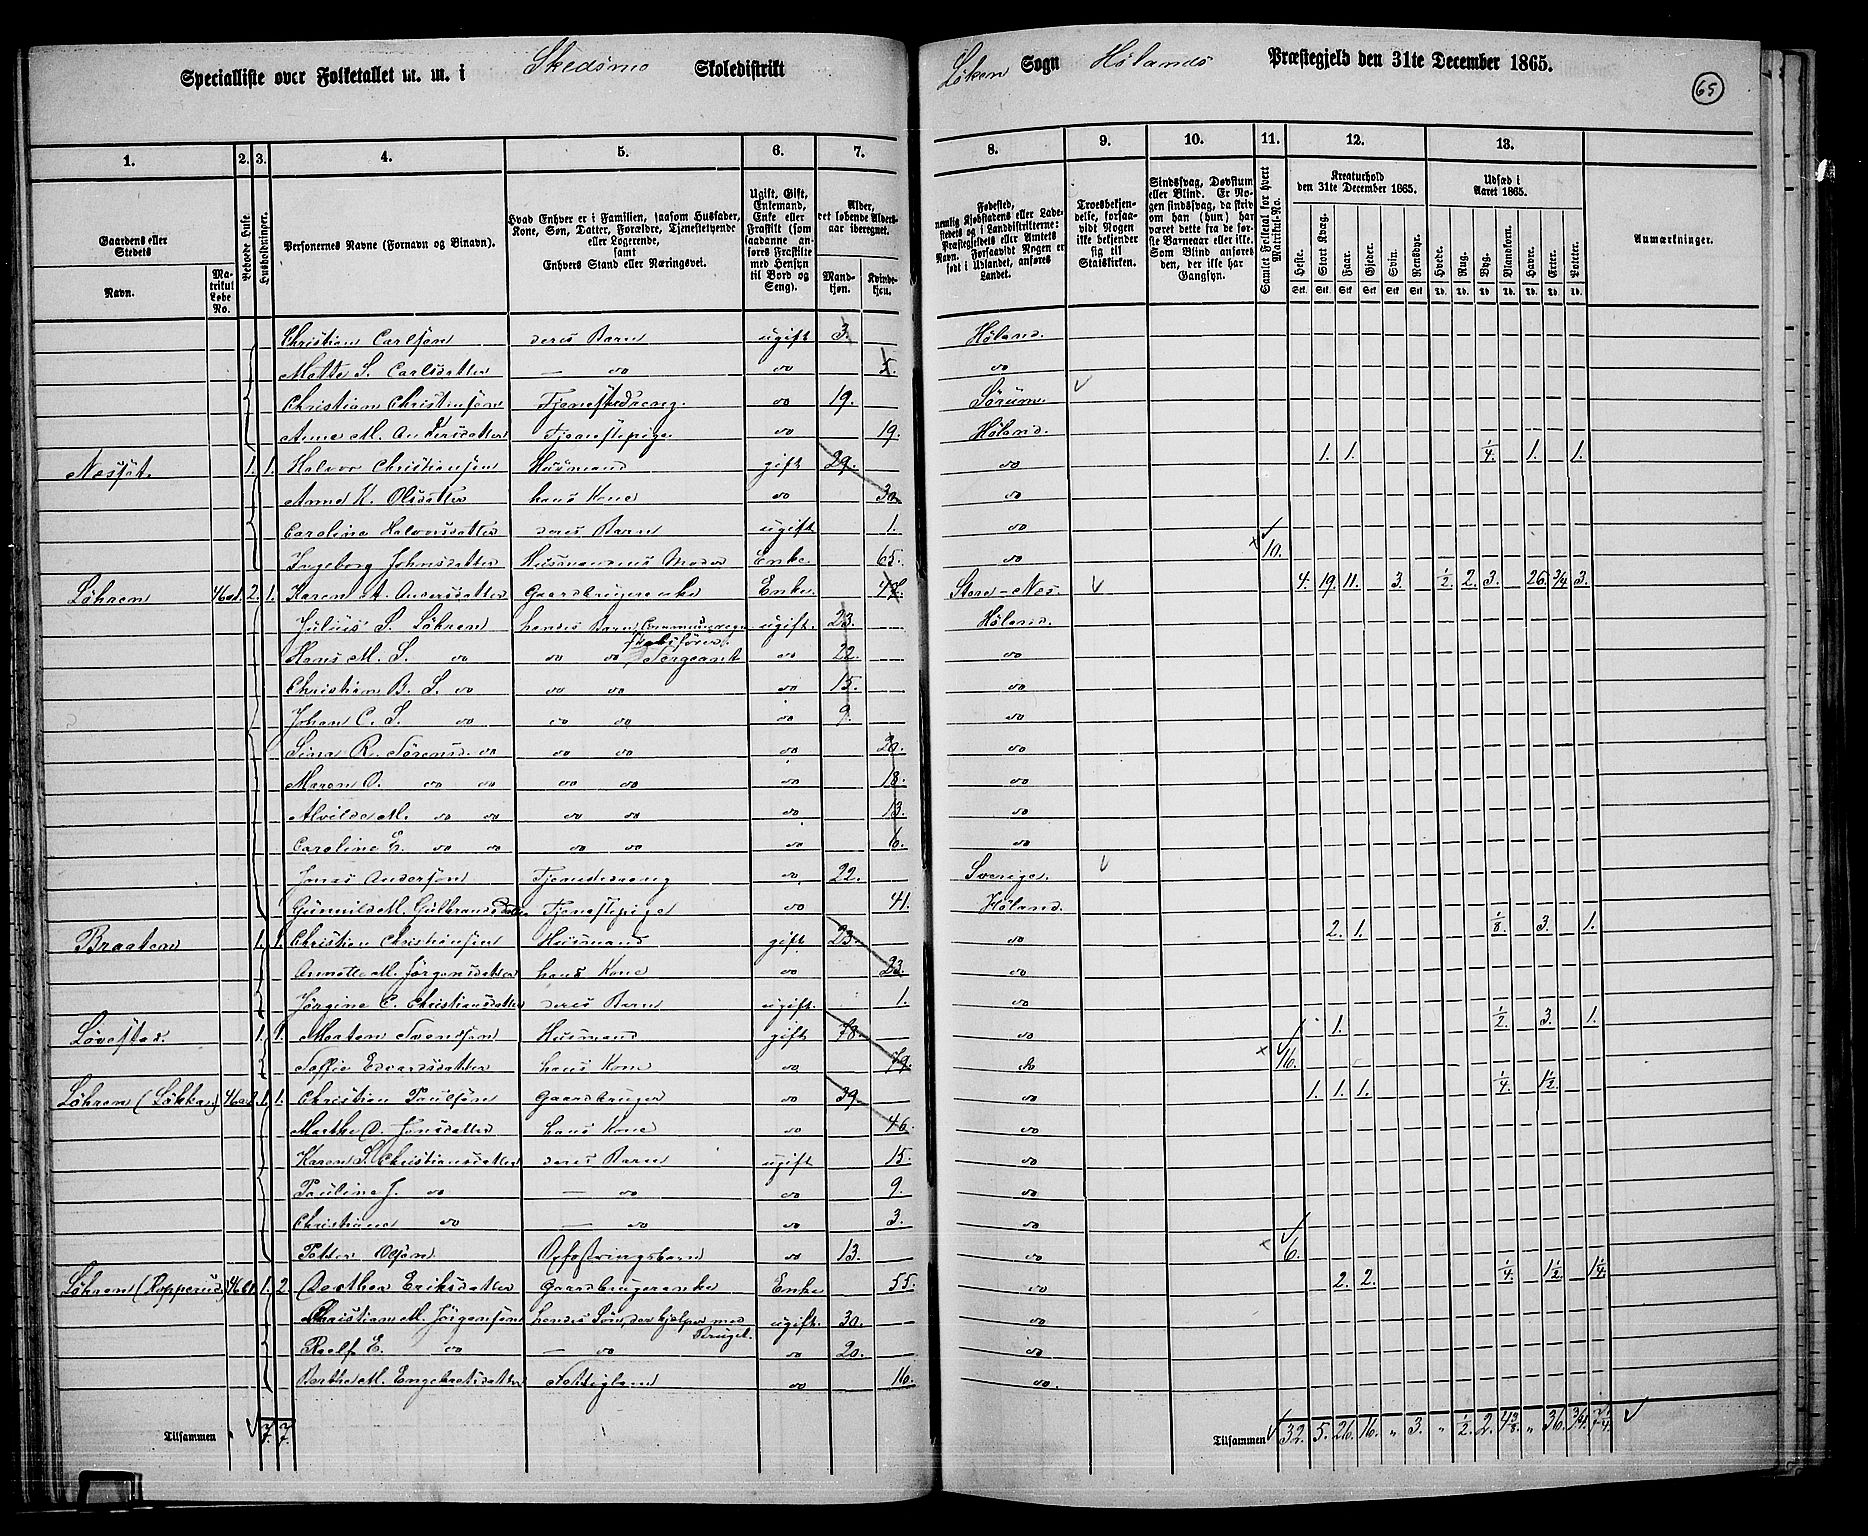 Specialliste over Folketallet m. m. i Skedsmo Skoledistrikt
Løken Sogn Hølands Præstegjeld den 31te December 1865.
65
1. 2. 3. 4. 5. 6. 7. 8. 9. 10. 11. 12. 13.
Gaardens eller Stedets
Navn.
Matrikul Løbe No.
Beboede Huse.
Husholdninger.
Personernes Navne (Fornavn og Binavn).
Hvad Enhver er i Familien, saasom Husfader, Kone, Søn, Datter, Forældre, Tjenestetyende eller Logerende, samt Enhvers Stand eller Næringsvei.
Ugift, Gift, Enkemand, Enke eller Fraskilt (som saadanne anføres Fraskilte med Hensyn til Bord og Seng).
Alder, det løbende Alders-aar iberegnet.
Mandkjøn. Kvindekjøn.
Fødested, nemlig Kjøbstadens eller Ladestedets og i Landdistrikterne: Præstegjeldets eller Amtets Navn. Forsaavidt Nogen er født i Udlandet, anføres Landet.
Troesbekjendelse, forsaavidt Nogen ikke bekjender sig til Statskirken.
Sindssvag, Døvstum eller Blind. Er Nogen sindssvag, da skrives om han (hun) har været dette fra de første Barneaar eller ikke. Som Blind anføres den, der ikke har Gangsyn.
Gamlet Helletal for hvert Matrikul-No.
Kreaturhold den 31te December 1865.
Heste. Stort Kvæg. Faar. Gjeder. Svin. Rensdyr.
Udsæd i Aaret 1865.
Hvede. Rug. Byg. Blandkorn. Havre. Erter. Poteter.
Anmærkninger.
Christian Carlsøn deres Barn ugift 3. Høland.
Mathe S. Carlsdatter — do do 5. do
Christian Christensøn Tjenestedreng do 19. Sørum
Anne M. Andersdatter Tjenestepige do 19. Høland.
Nesset. 1. 1. Halvor Christiansøn Husmand gift 29. do 1. 1. 1/4. 1. 1.
Anne K. Olsdatter hans Kone do 30. do
Caroline Halvorsdatter deres Barn ugift 1. do
Ingeborg Johnsdatter Husmandens Moder Enke. 65. do 10.
Løhren 2. 1. Karen A. Andersdatter Gaardbrugerenke Enke. Store-Nes. 4. 19. 11. 3. 1/2. 2. 3. 26. 3/4 3.
Julius S. Løhren hendes Barn ugift. 23. Høland.
Hans M. S. do do do Sergeant do 22. do
Christian B. S. do do do do 15. do
Johan C. S. do do do do 9. do
Lina R. Sørensd. do do do do 20. do
Maren O. do do do do do 18. do
Alvilde M. do do do do do 13. do
Caroline E. do do do do do 6. do
Jonas Andersøn Tjenestedreng do 22. Sverige.
Gunnild M. Gulbrandsdatter Tjenestepige do 41. Høland.
Braaten 1. 1. Christian Christiansøn Husmand gift 23. do 2. 1. 1/8. 3. 1.
Annette M. Jørgensdatter hans Kone do 23. do
Jørgine C. Christiansdatter deres Barn ugift. 1. do
Løvestad. 1. 1. Morten Svendsøn Husmand gift 78. do 1. 1/2. 3. 1.
Soffie Edvardsdatter hans Kone do 79. do 16.
Løhren (Løkka) 1. 1. Christian Paulsøn Gaardbruger do 39. do 1. 1. 1. 1/4. 1 1/2.
Marthe O. Jonsdatter hans Kone do 46. do
Karen S. Christiansdatter deres Barn ugift 15. do
Pauline J. do — do do 9. do
Christiane do — do do 3. do
Petter Olsøn Opfostringsbarn do 13. do 6.
Løhren (Kopperud) 1. 2. Dorthea Eriksdatter Gaardbrugerenke Enke 55. do 2. 2. 1/4. 1 1/2. 1 1/4
Christian M. Jørgensøn hendes Søn, der hjelper med Bruget. ugift. 30. do
Roelf E. do — do do 20. do
Berthe M. Engebretsdatter Fattiglem do 16. do.
Tilsammen 7. 7.
Tilsammen 32. 5. 26. 16. „ 3. „ 1/2. 2. 4 3/8. „ 36. 3/4.